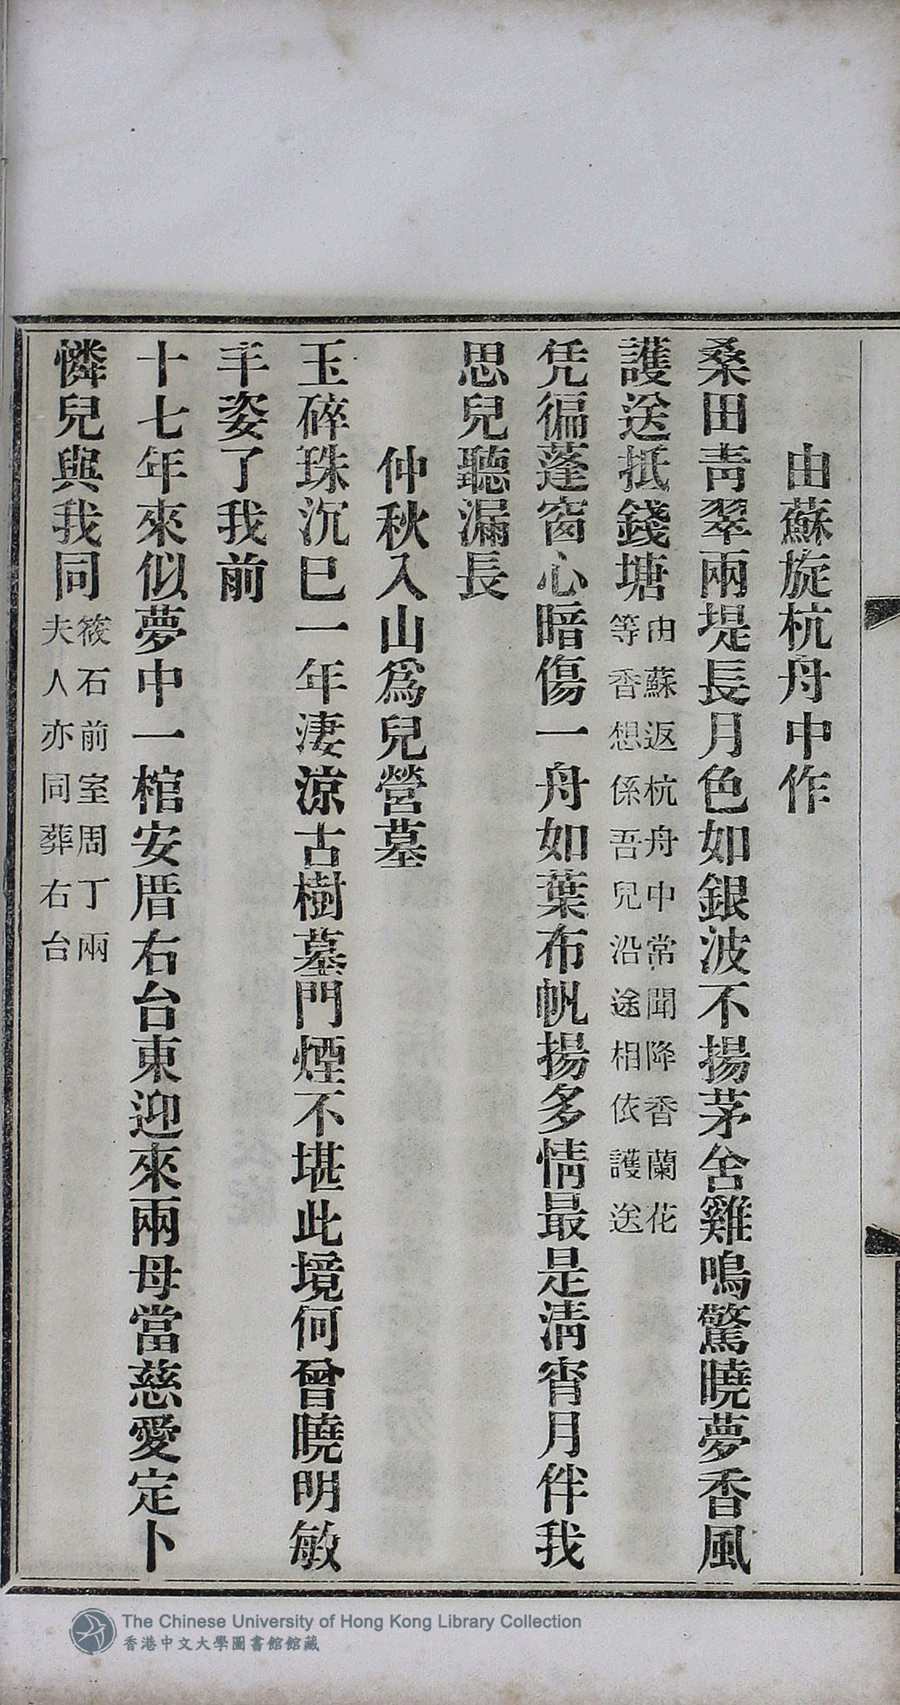 由蘇旋杭舟中作
桑田靑翠兩堤長月色如銀波不揚茅舍雞鳴驚曉夢香風
護送抵錢塘由蘇返杭舟中常聞降香蘭花
等香想係吾兒沿途相依護送
凭徧蓬窗心暗傷一舟如葉布帆揚多情最是淸宵月伴我
思兒聽漏長
仲秋入山爲兒營墓
玉碎珠沉巳一年淒涼古樹墓門煙不堪此境何曾曉明敏
丰姿了我前
十七年來似夢中一棺安厝右台東迎來兩母當慈愛定卜
憐兒與我同筱石前室周丁兩
夫人亦同葬右台
The Chinese University of Hong Kong Library Collection
香港中文大學圖書館館藏